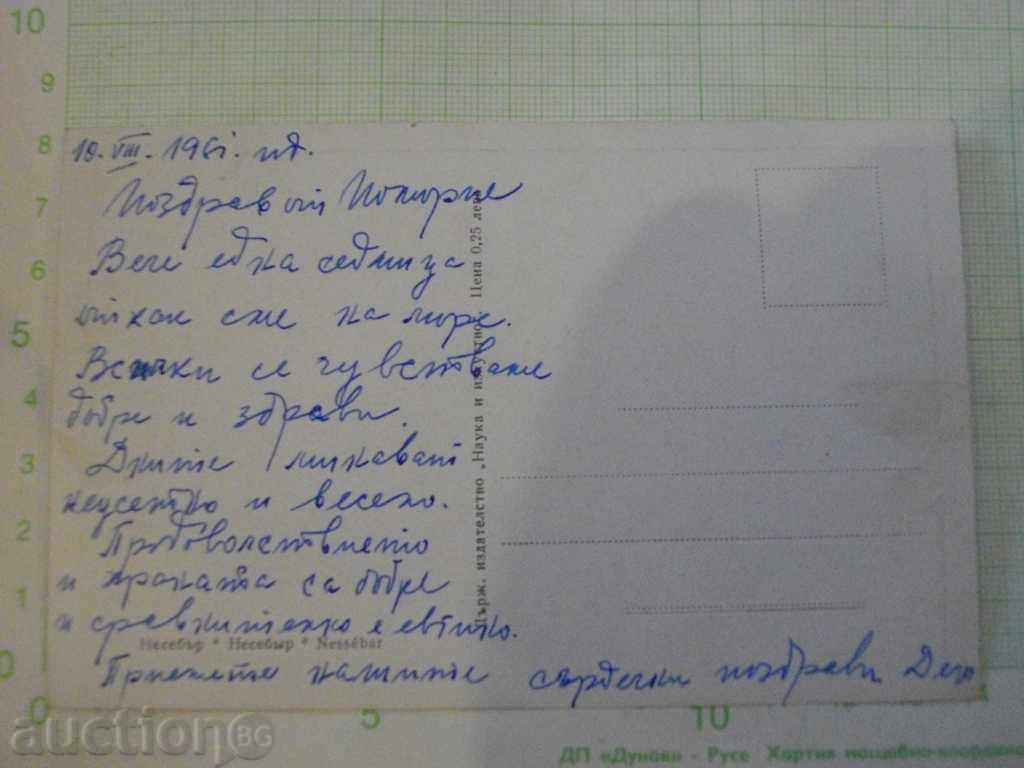 10. VIII. 1961. год.
Поздрав от Поморие
Вече една седмица
откак сме на море.
Всички се чувстваме
добре и здрави.
Дните минават
неусетно и весело.
Продоволствието
и храната са добре
и сравнително е евтино.
Приемете нашите сърдечни поздрави
Несебър * Несебыр * Nessébar
Държ. издателство „Наука и изкуство" Цена 0,25 лева
10
9
8
7
6
5
4
3
2
1
0
0 5 10
ДП «Дунав» - Русе Хартия
auction BG